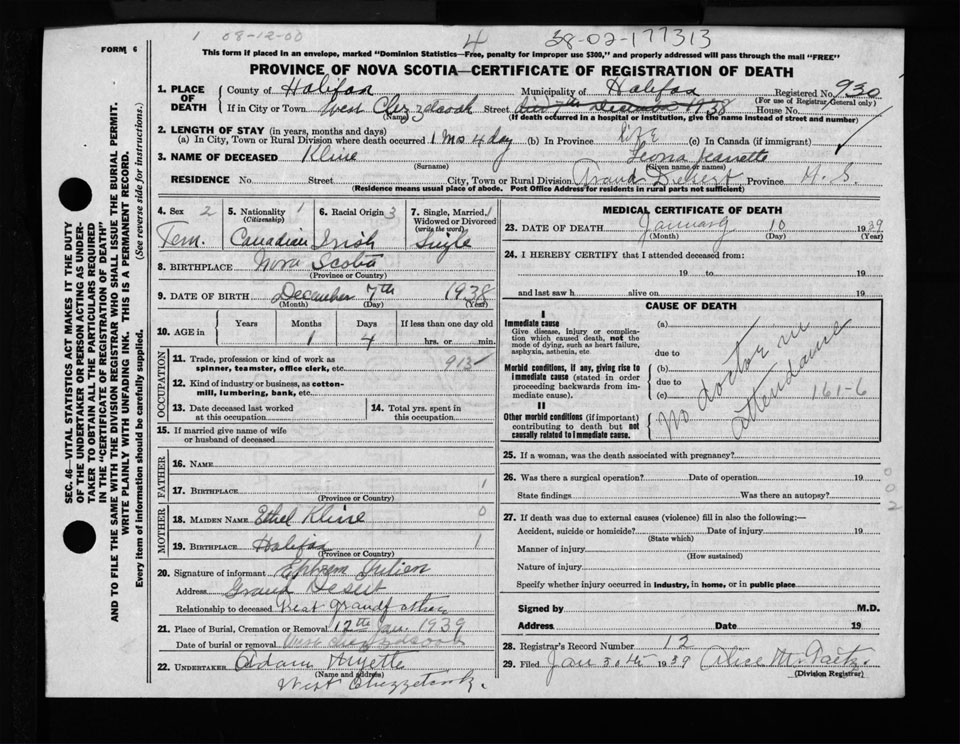 1 08-12-00
4 38-02-177313
FORM 6
This form if placed in an envelope, marked "Dominion Statistics—Free, penalty for improper use $300," and properly addressed will pass through the mail "FREE"
PROVINCE OF NOVA SCOTIA—CERTIFICATE OF REGISTRATION OF DEATH
1. PLACE OF DEATH County of Halifax Municipality of Halifax Registered No. 930
(For use of Registrar General only)
If in City or Town West Chezzetcook Street died 7th December 1938 House No.
(Name) (If death occurred in a hospital or institution, give the name instead of street and number)
2. LENGTH OF STAY (in years, months and days)
(a) In City, Town or Rural Division where death occurred 1 Mo 4 day (b) In Province Life (c) In Canada (if immigrant)
3. NAME OF DECEASED Kline Leona Jeanette
(Surname) (Given name or names)
RESIDENCE No. Street City, Town or Rural Division Grand Desert Province N. S.
(Residence means usual place of abode. Post Office Address for residents in rural parts not sufficient)
SEC. 46—VITAL STATISTICS ACT MAKES IT THE DUTY
OF THE UNDERTAKER OR PERSON ACTING AS UNDER-
TAKER TO OBTAIN ALL THE PARTICULARS REQUIRED
IN THE "CERTIFICATE OF REGISTRATION OF DEATH"
AND TO FILE THE SAME WITH THE DIVISION REGISTRAR WHO SHALL ISSUE THE BURIAL PERMIT.
WRITE PLAINLY WITH UNFADING INK. THIS IS A PERMANENT RECORD.
Every item of information should be carefully supplied. (See reverse side for instructions.)
4. Sex 2 5. Nationality 1 6. Racial Origin 3 7. Single, Married, Widowed or Divorced
(Citizenship) (write the word)
Fem. Canadian Irish Single
8. BIRTHPLACE Nova Scotia
(Province or Country)
9. DATE OF BIRTH December 7th 1938
(Month) (Day) (Year)
10. AGE in Years Months Days If less than one day old
1 4 hrs. or min.
OCCUPATION
11. Trade, profession or kind of work as
spinner, teamster, office clerk, etc.
12. Kind of industry or business, as cotton-
mill, lumbering, bank, etc.
13. Date deceased last worked
at this occupation
14. Total yrs. spent in
this occupation
15. If married give name of wife
or husband of deceased
FATHER
16. NAME
17. BIRTHPLACE 1
(Province or Country)
MOTHER
18. MAIDEN NAME Ethel Kline 0
19. BIRTHPLACE Halifax 1
(Province or Country)
20. Signature of informant Ephrem Julien
Address Grand Desert
Relationship to deceased Great Grandfather
21. Place of Burial, Cremation or Removal 12th Jan. 1939
Date of burial or removal West Chezzetcook
22. UNDERTAKER Adam
(Name and address)
West Chezzetcook.
MEDICAL CERTIFICATE OF DEATH
23. DATE OF DEATH January 10 1939
(Month) (Day) (Year)
24. I HEREBY CERTIFY that I attended deceased from:
19 to 19
and last saw h alive on 19
CAUSE OF DEATH
I
Immediate cause
Give disease, injury or complica-
tion which caused death, not the
mode of dying, such as heart failure,
asphyxia, asthenia, etc
Morbid conditions, if any, giving rise to
immediate cause (stated in order
proceeding backwards from im-
mediate cause).
II
Other morbid conditions (if important)
contributing to death but not
causally related to immediate cause.
(a)
due to
(b)
due to
(c)
No doctor in
attendance
161-6
25. If a woman, was the death associated with pregnancy?
26. Was there a surgical operation? Date of operation 19
State findings Was there an autopsy?
002
27. If death was due to external causes (violence) fill in also the following:—
Accident, suicide or homicide? Date of injury 19
(State which)
Manner of injury
(How sustained)
Nature of injury
Specify whether injury occurred in industry, in home, or in public place
Signed by M.D.
Address Date 19
28. Registrar's Record Number 12
29. Filed Jan 30th 1939 Alice M.
(Division Registrar)